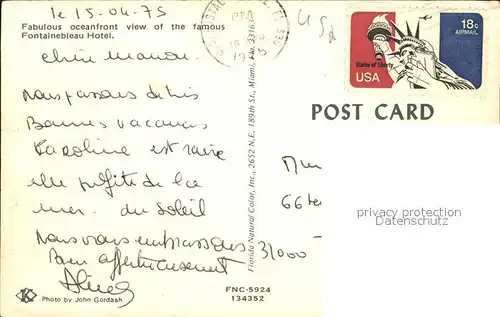 le 15-04-75
Fabulous oceanfront view of the famous
Fontainebleau Hotel.
Chère Manou.
Nous passons de très
Bonnes vacances
Karoline est ravie
elle profite de la
mer. du soleil
Nous vous embrassons
Bien affectueusement
Photo by John Gordash
Florida Natural Color, Inc., 2652 N.E. 189th St., Miami, Fla. 33163
FNC-5924
134352
USA
18c
AIRMAIL
Statue of Liberty
USA
POST CARD
66
31000
privacy protection
Datenschutz